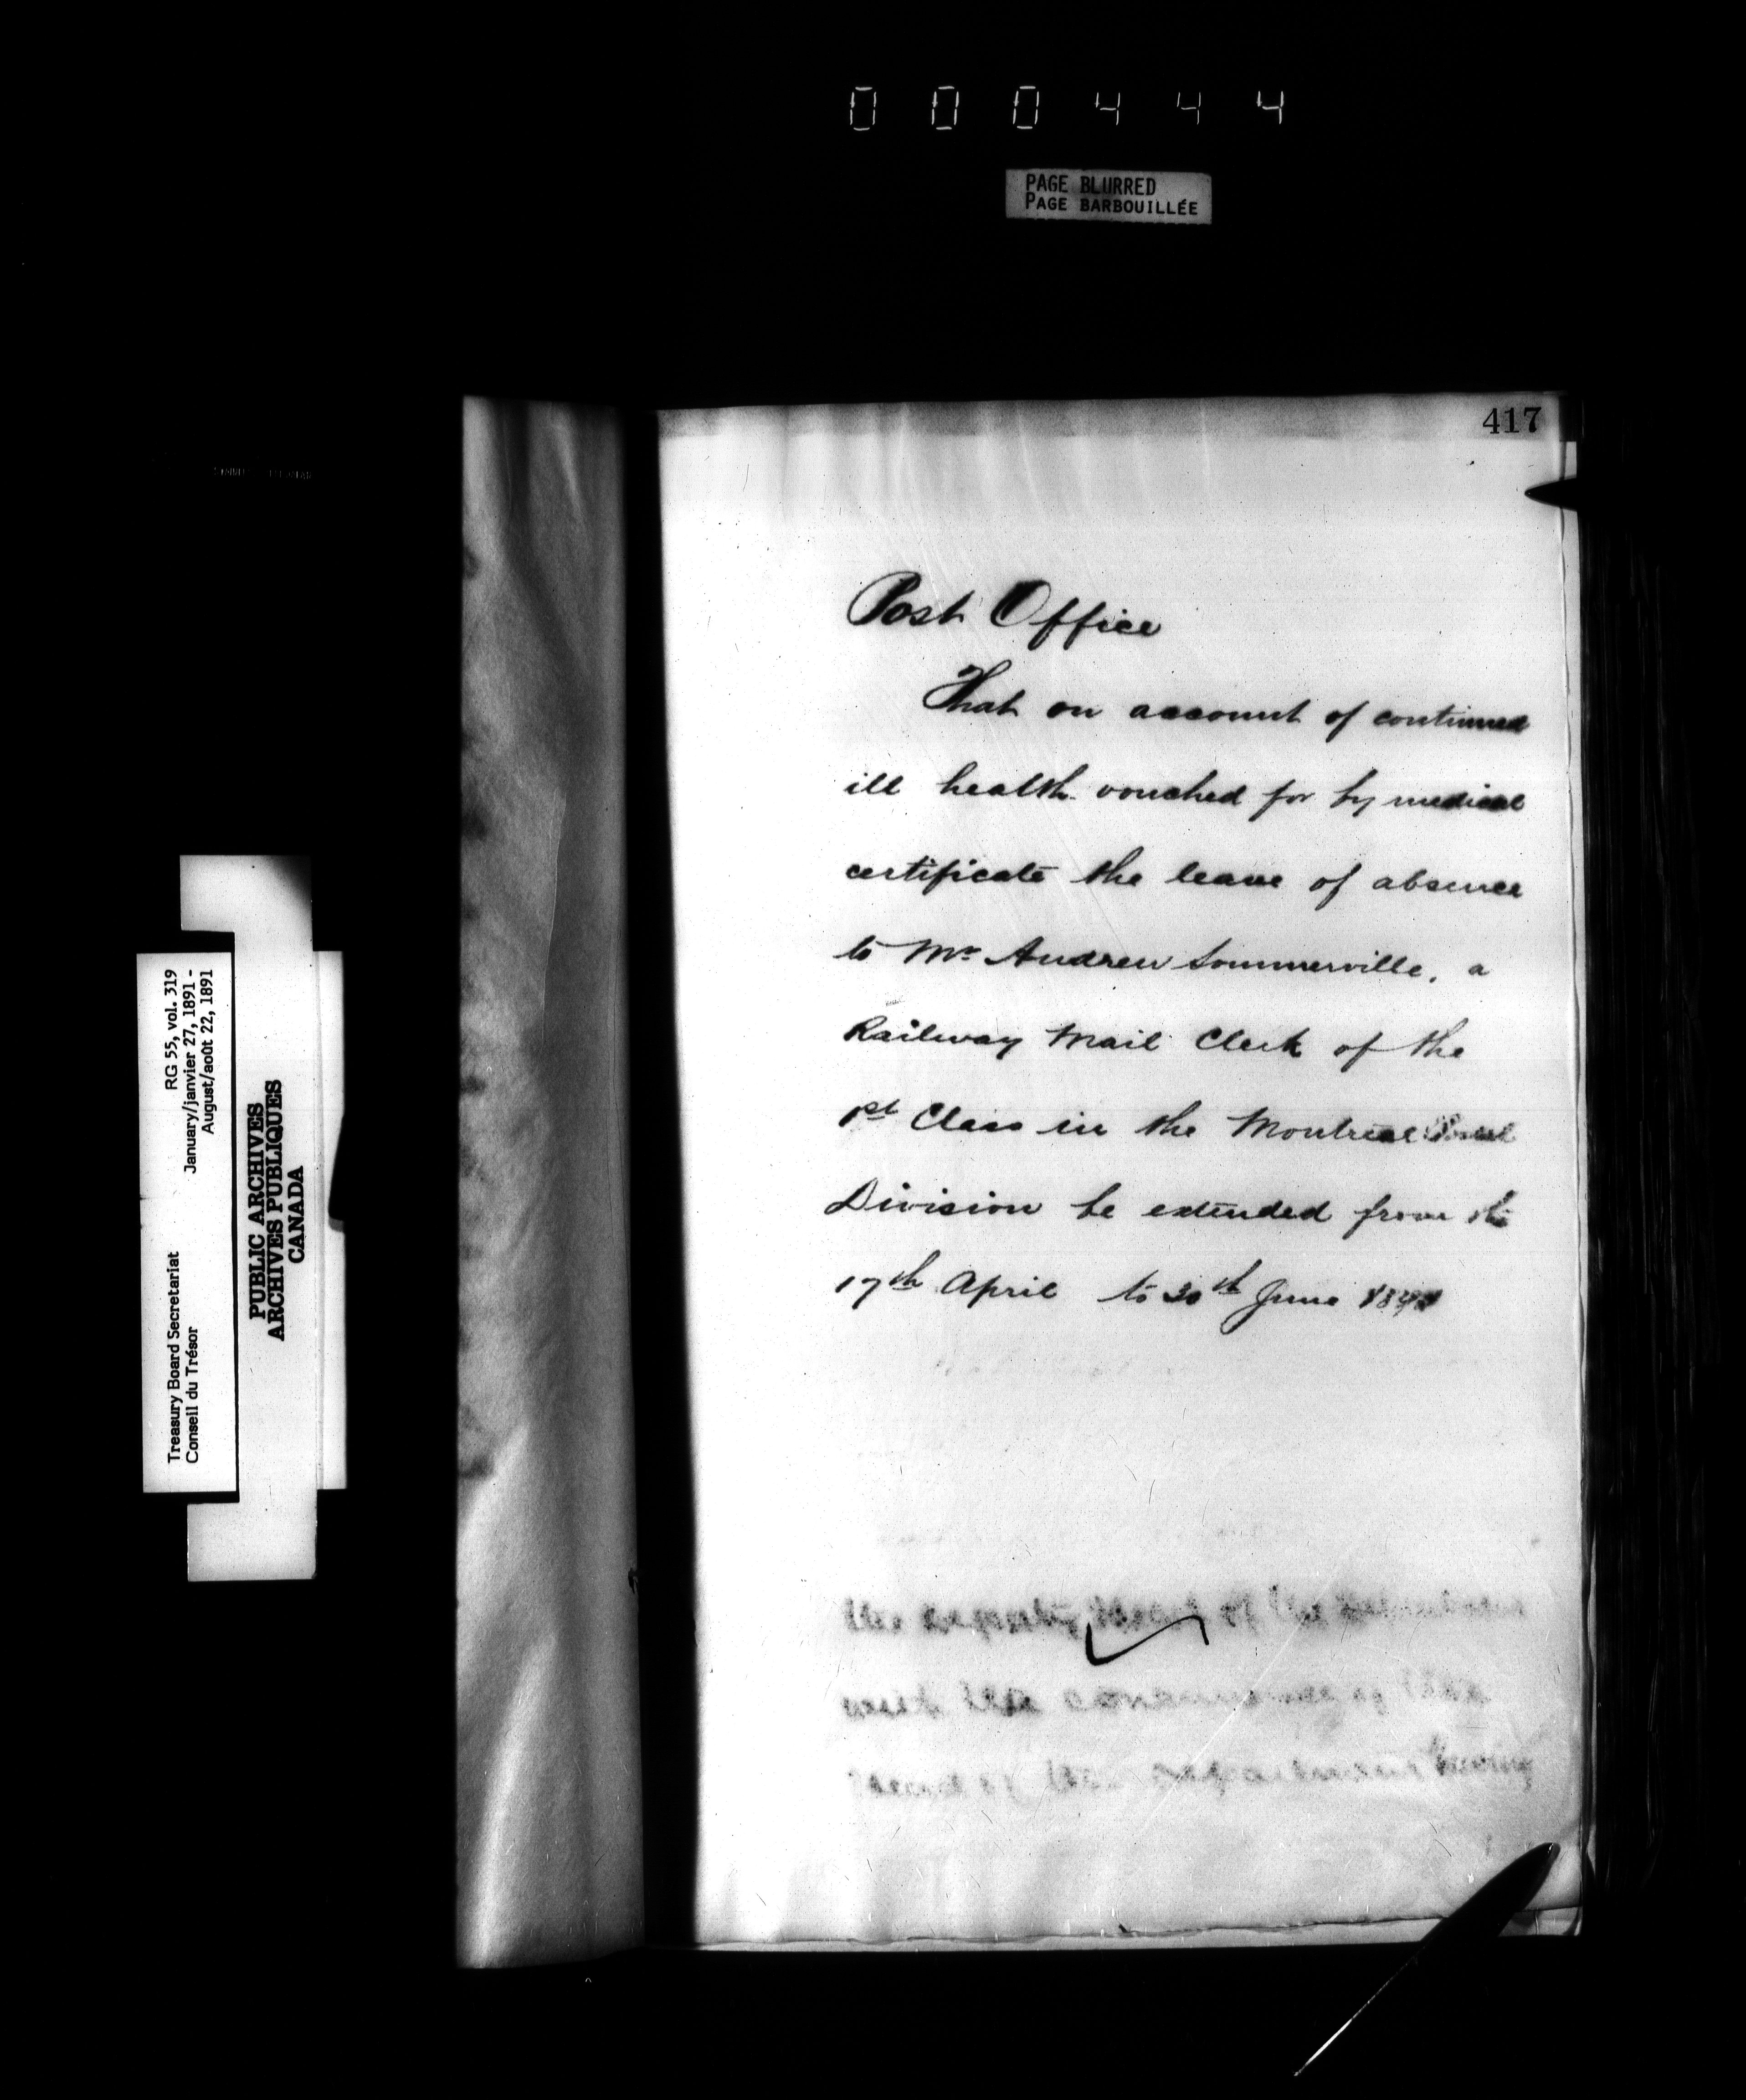 000444
PAGE BLURRED
PAGE BARBOUILLÉE
417
Post Office
That on account of continued
ill health vouched for by medical
certificate the leave of absence
to Mr Andrew Sommerville, a
Railway Mail Clerk of the
1st Class in the Montreal Postal
Division be extended from the
17th April to 30th June 1891
the Deputy Head of the
with the concurrence of the
Head of the Department having
RG 55, vol. 319
January/janvier 27, 1891 -
August/août 22, 1891
Treasury Board Secretariat
Conseil du Trésor
PUBLIC ARCHIVES
ARCHIVES PUBLIQUES
CANADA